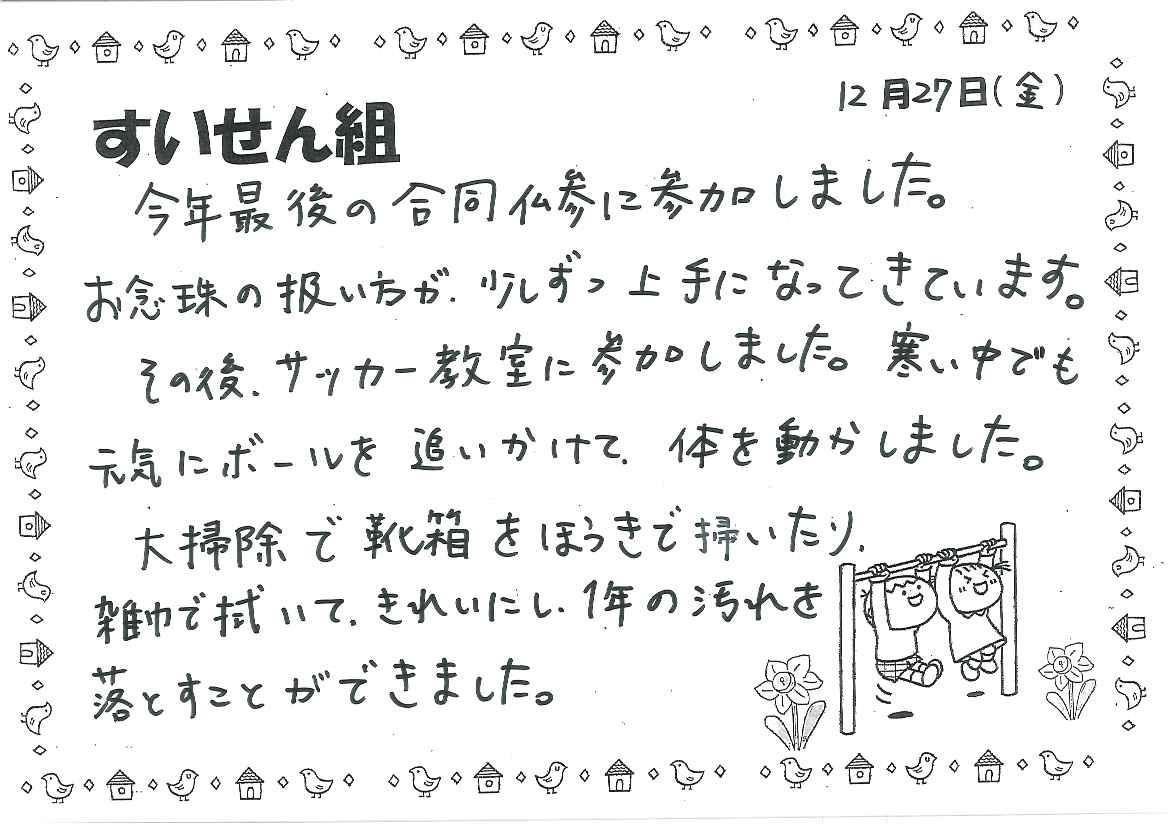 12月27日(金)
すいせん組
今年最後の合同仏参に参加しました。
お念珠の扱い方が、少しずつ上手になってきています。
その後、サッカー教室に参加しました。寒い中でも
元気にボールを追いかけて、体を動かしました。
大掃除で靴箱をほうきで掃いたり、
雑巾で拭いて、きれいにし、1年の汚れを
落とすことができました。